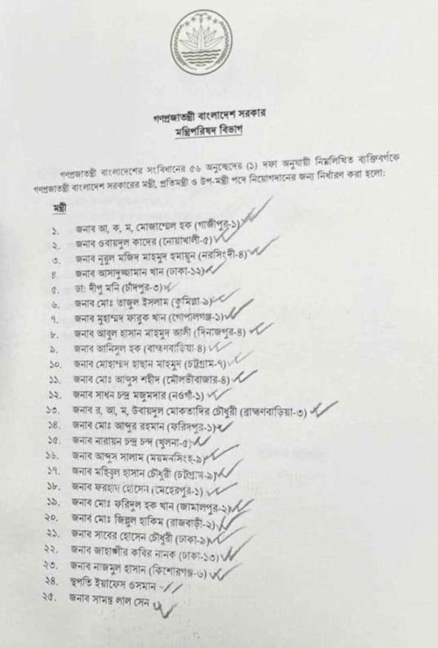 গণপ্রজাতন্ত্রী বাংলাদেশ সরকার
মন্ত্রিপরিষদ বিভাগ
গণপ্রজাতন্ত্রী বাংলাদেশের সংবিধানের ৫৬ অনুচ্ছেদের (১) দফা অনুযায়ী নিম্নলিখিত ব্যক্তিবর্গকে
গণপ্রজাতন্ত্রী বাংলাদেশ সরকারের মন্ত্রী, প্রতিমন্ত্রী ও উপ-মন্ত্রী পদে নিয়োগদানের জন্য নির্ধারণ করা হলো:
মন্ত্রী
১. জনাব আ, ক, ম, মোজাম্মেল হক (গাজীপুর-১)
২. জনাব ওবায়দুল কাদের (নোয়াখালী-৫)
৩. জনাব নূরুল মজিদ মাহমুদ হুমায়ূন (নরসিংদী-৪)
৪. জনাব আসাদুজ্জামান খান (ঢাকা-১২)
৫. ডা: দীপু মনি (চাঁদপুর-৩)
৬. জনাব মোঃ তাজুল ইসলাম (কুমিল্লা-৯)
৭. জনাব মুহাম্মদ ফারুক খান (গোপালগঞ্জ-১)
৮. জনাব আবুল হাসান মাহমুদ আলী (দিনাজপুর-৪)
৯. জনাব আনিসুল হক (ব্রাহ্মণবাড়িয়া-৪)
১০. জনাব মোহাম্মদ হাছান মাহমুদ (চট্টগ্রাম-৭)
১১. জনাব মোঃ আব্দুস শহীদ (মৌলভীবাজার-৪)
১২. জনাব সাধন চন্দ্র মজুমদার (নওগাঁ-১)
১৩. জনাব র, আ, ম, উবায়দুল মোকতাদির চৌধুরী (ব্রাহ্মণবাড়িয়া-৩)
১৪. জনাব মোঃ আব্দুর রহমান (ফরিদপুর-১)
১৫. জনাব নারায়ন চন্দ্র চন্দ (খুলনা-৫)
১৬. জনাব আব্দুস সালাম (ময়মনসিংহ-৯)
১৭. জনাব মহিবুল হাসান চৌধুরী (চট্টগ্রাম-৯)
১৮. জনাব ফরহাদ হোসেন (মেহেরপুর-১)
১৯. জনাব মোঃ ফরিদুল হক খান (জামালপুর-২)
২০. জনাব মোঃ জিল্লুল হাকিম (রাজবাড়ী-২)
২১. জনাব সাবের হোসেন চৌধুরী (ঢাকা-৯)
২২. জনাব জাহাঙ্গীর কবির নানক (ঢাকা-১৩)
২৩. জনাব নাজমুল হাসান (কিশোরগঞ্জ-৬)
২৪. স্থপতি ইয়াফেস ওসমান
২৫. জনাব সামন্ত লাল সেন